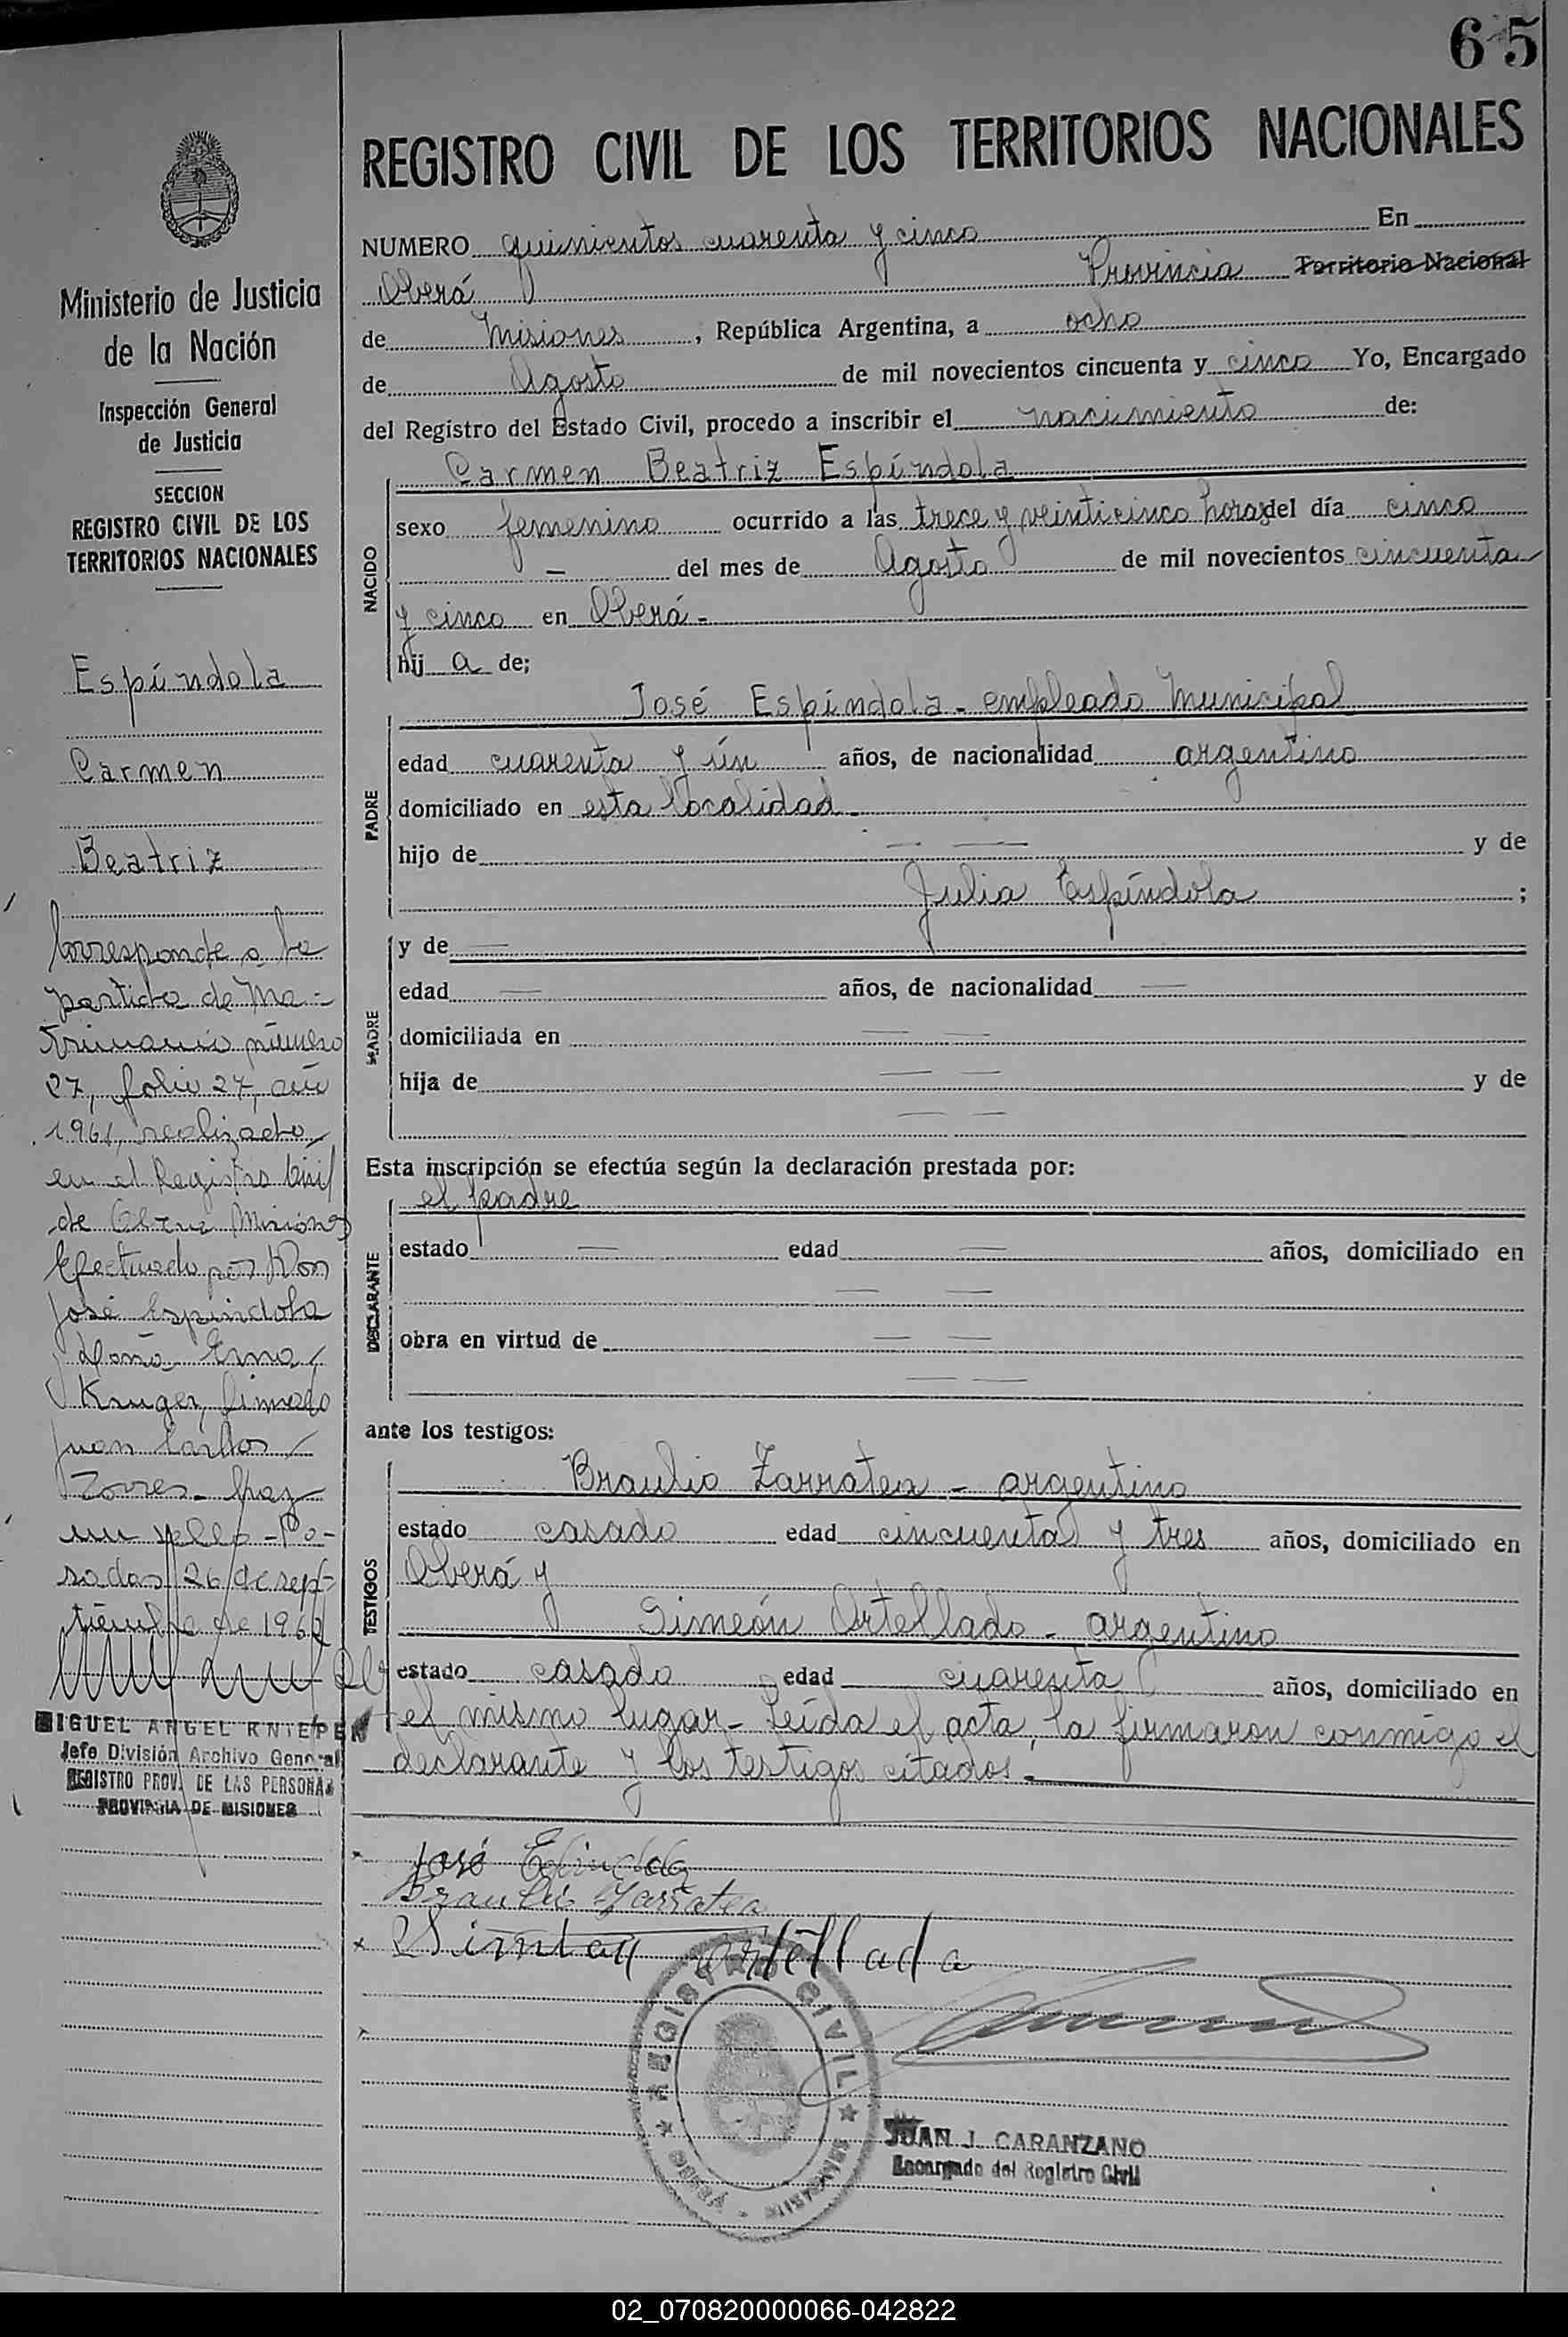 65
REGISTRO CIVIL DE LOS TERRITORIOS NACIONALES
NUMERO quinientos cuarenta y cinco En
Oberá Provincia Territorio Nacional
de Misiones, República Argentina, a ocho
de Agosto de mil novecientos cincuenta y cinco Yo, Encargado
del Registro del Estado Civil, procedo a inscribir el nacimiento de:
NACIDO
Carmen Beatriz Espíndola
sexo femenino ocurrido a las trece y veinticinco horas del día cinco
— del mes de Agosto de mil novecientos cincuenta
y cinco en Oberá.-
hij a de;
PADRE
José Espíndola - empleado Municipal
edad cuarenta y ún años, de nacionalidad argentino
domiciliado en esta localidad.
hijo de — — y de
Julia Espíndola ;
MADRE
y de —
edad — años, de nacionalidad —
domiciliada en — —
hija de — — y de
— —
Esta inscripción se efectúa según la declaración prestada por:
DECLARANTE
el padre
estado — edad — años, domiciliado en
— —
obra en virtud de — —
— —
ante los testigos:
TESTIGOS
Braulio Zarratea - argentino
estado casado edad cincuenta y tres años, domiciliado en
Oberá y
Simeón Ortellado - argentino
estado casado edad cuarenta años, domiciliado en
el mismo lugar - Leída el acta, la firmaron conmigo el
declarante y los testigos citados.-
José
Braulio Zarratea
REGISTRO CIVIL
OBERÁ - MISIONES
JUAN J. CARANZANO
Encargado del Registro Civil
Ministerio de Justicia
de la Nación
Inspección General
de Justicia
SECCION
REGISTRO CIVIL DE LOS
TERRITORIOS NACIONALES
Espíndola
Carmen
Beatriz
Corresponde a la
partida de Ma-
trimonio número
27, folio 27, año
1961, realizado
en el Registro Civil
de Misiones
Efectuado por Don
José Espíndola
y Doña Erna
Kruger, firmado
Juan Carlos
Torres - hay
un sello - Po-
sadas 26 de sep-
tiembre de
MIGUEL ANGEL KNIEPER
Jefe División Archivo General
REGISTRO PROV. DE LAS PERSONAS
PROVINCIA DE MISIONES
02_070820000066-042822